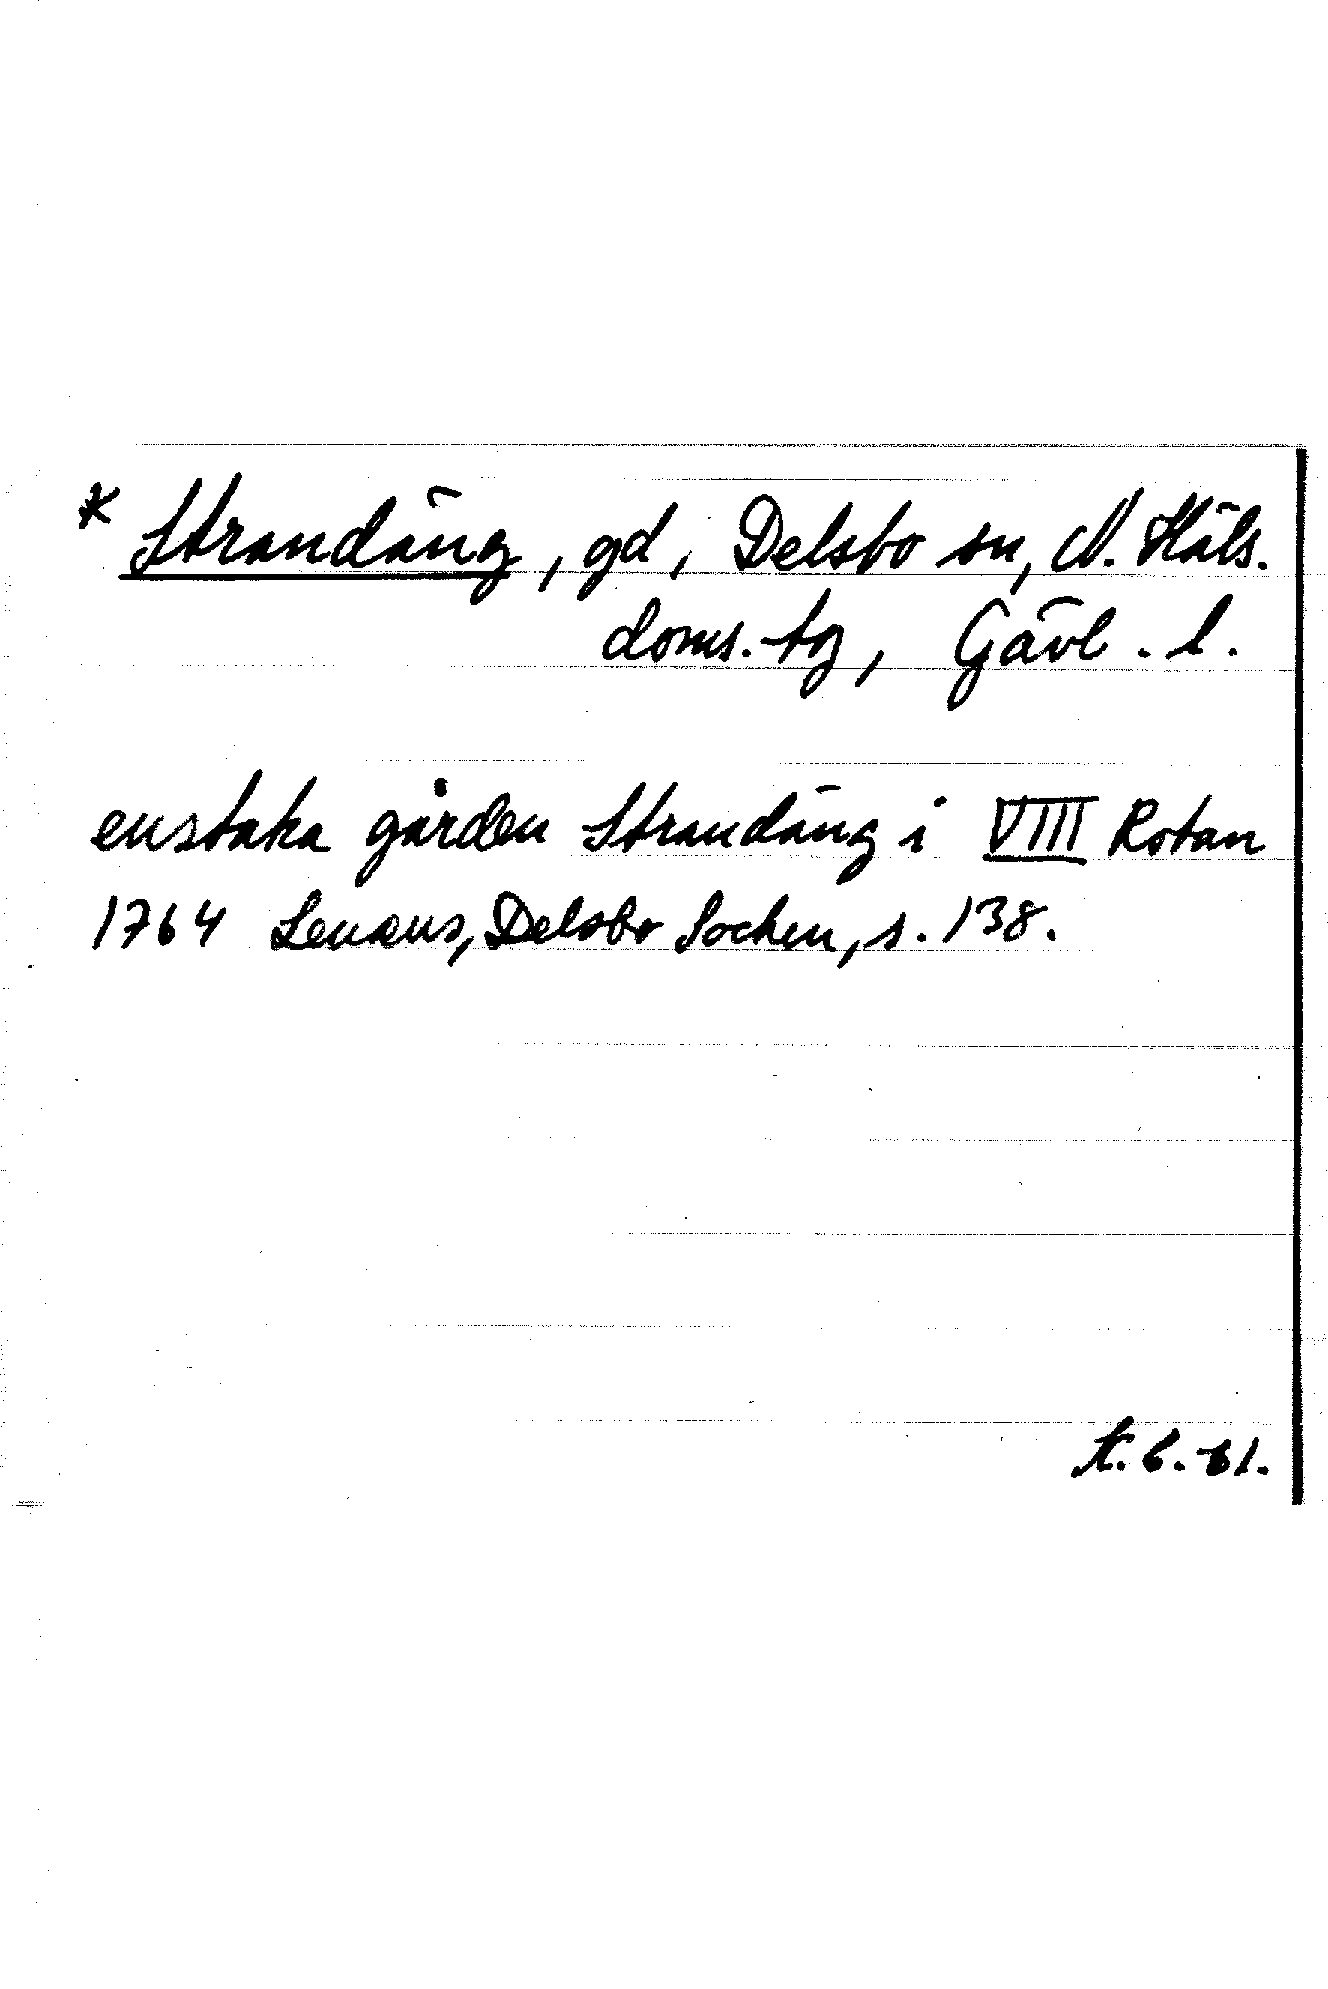 * Strandäng, gd, Delsbo sn, N. Häls.
doms.-tg, Gävl. l.
enstaka gården Strandäng i VIIII Rotan
1764 Lenæus, Delsbo Sochen, s. 138.
t.b.-61.